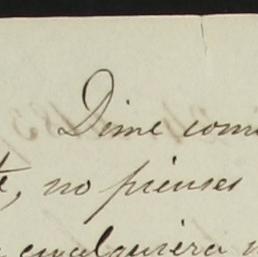 Dime com
te, no pienses
cualquiera